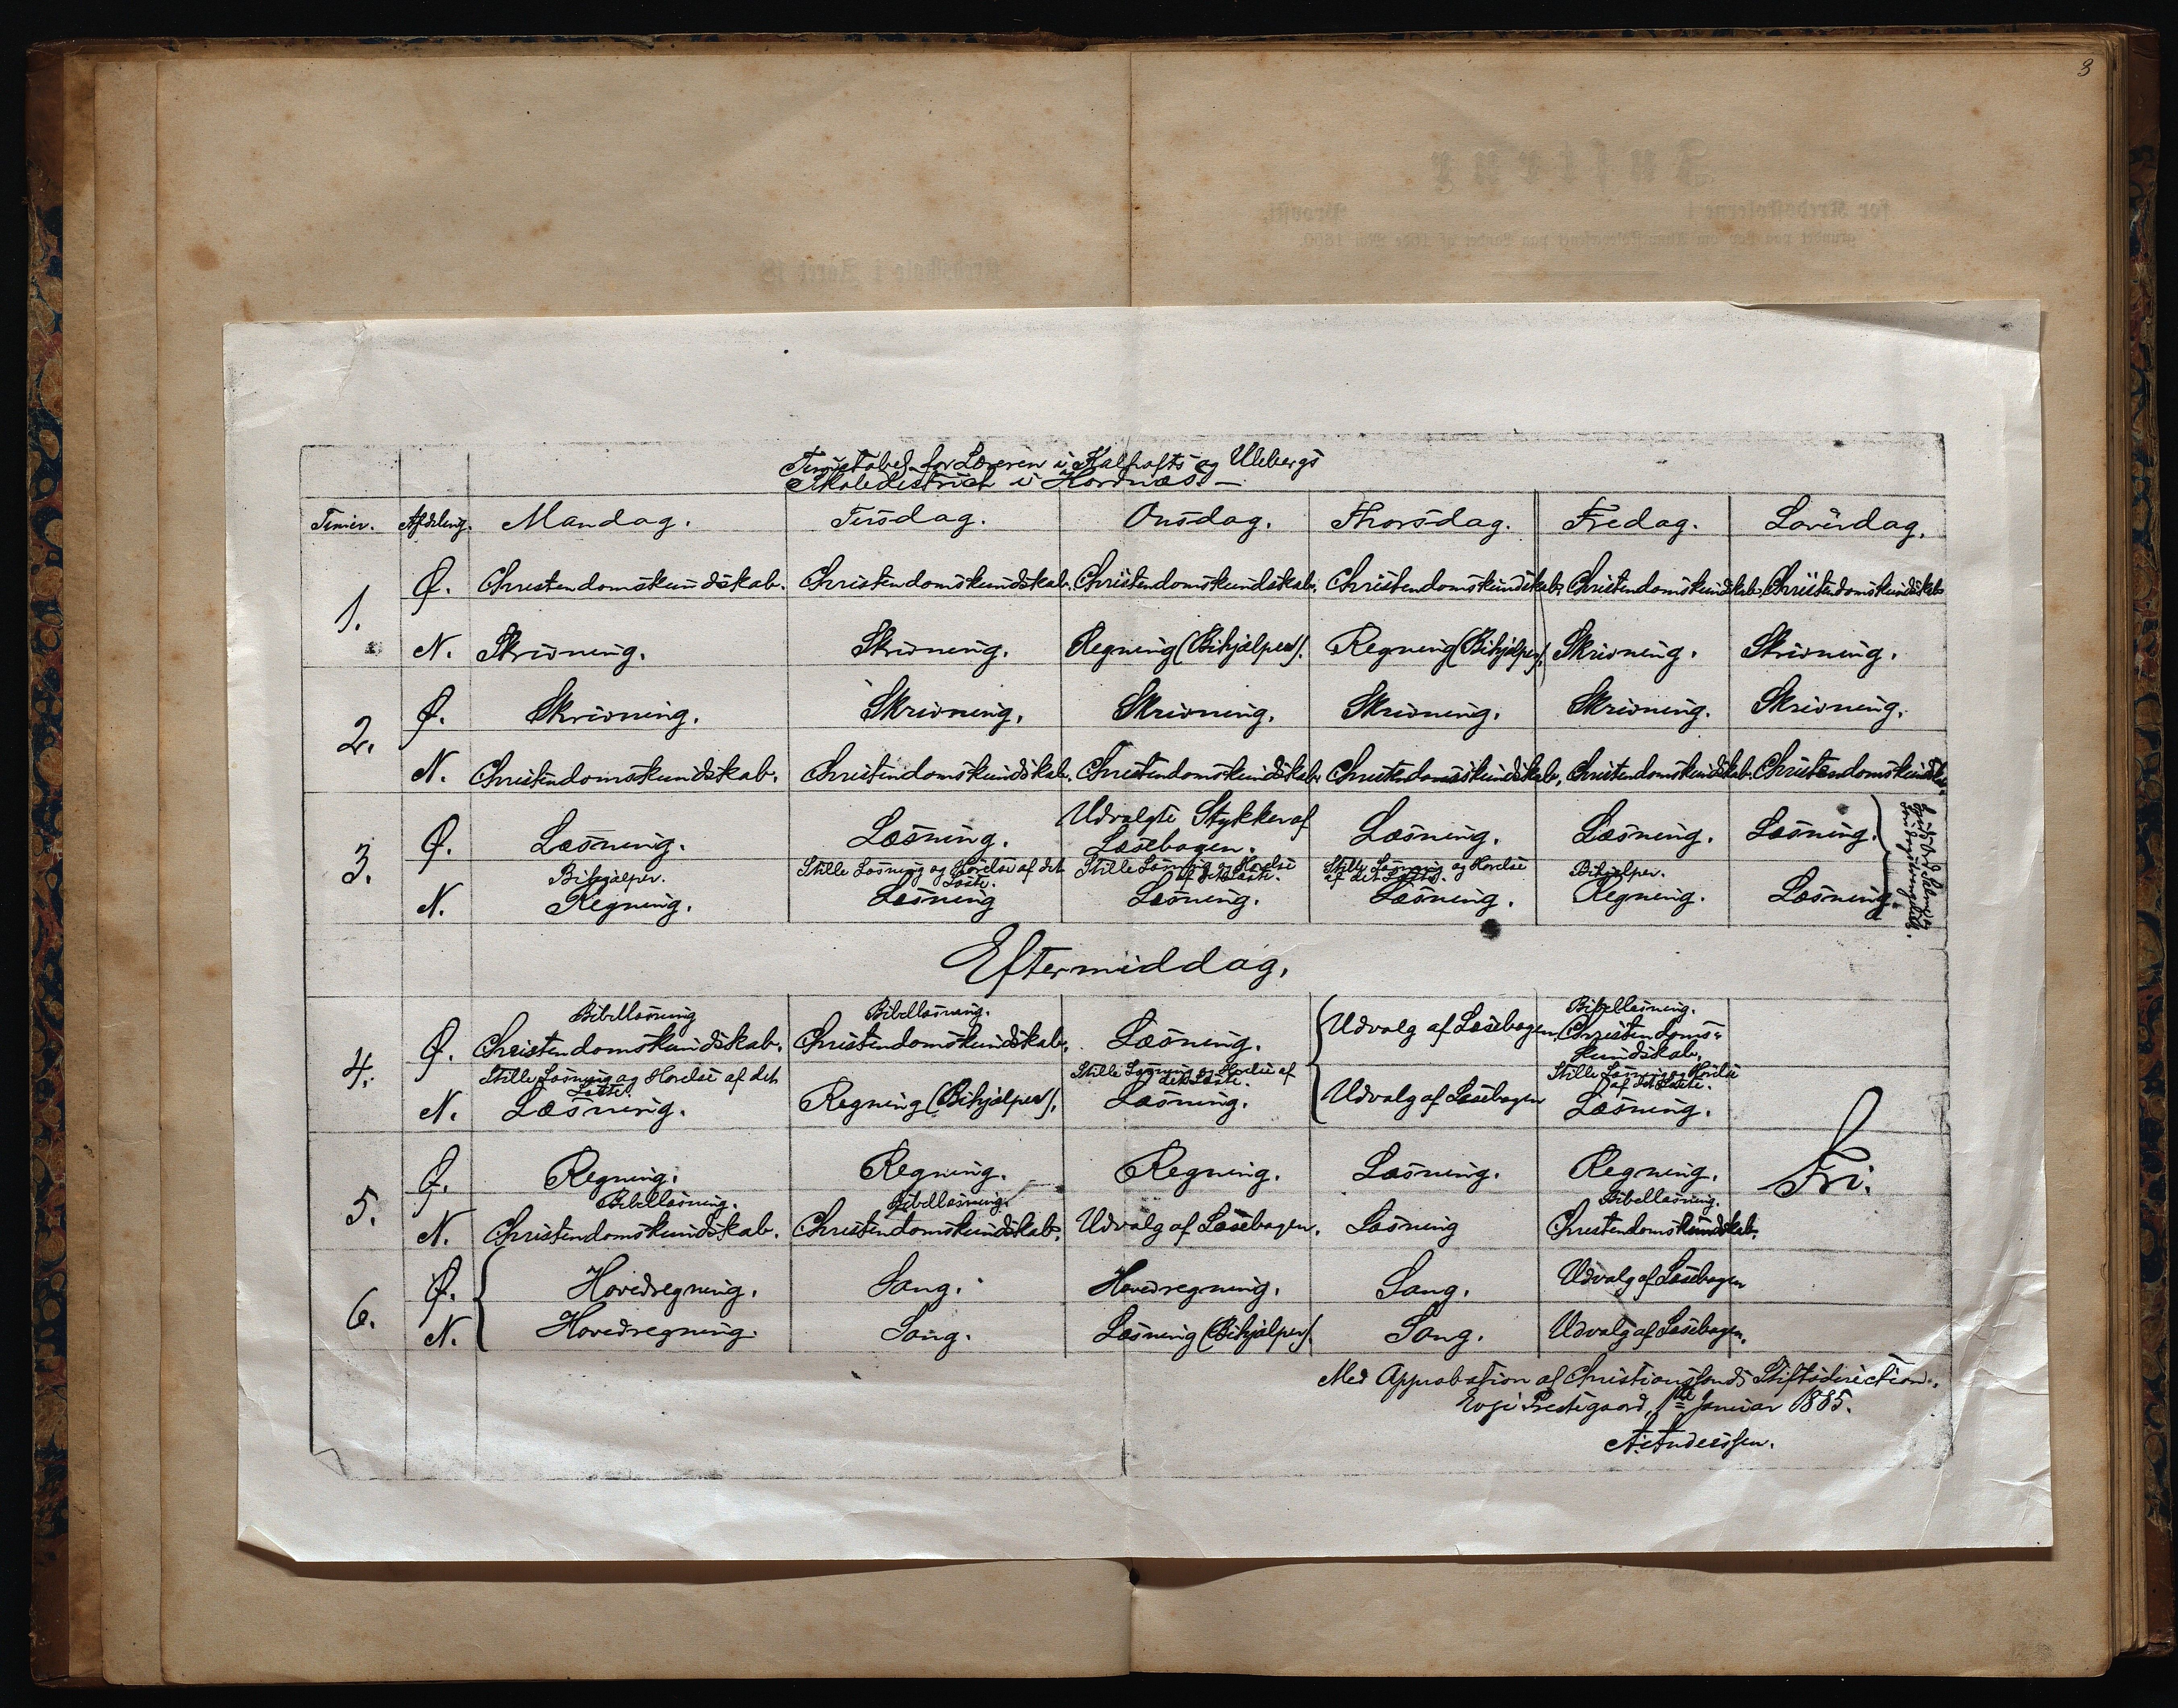 3
Timetabel for Læreren i Kalhofts og Uleberg's
Skoledistrict i Hornæs.
Timer. Afdeling. Mandag. Tirsdag. Onsdag. Thorsdag. Fredag. Løverdag.
1. Ø. Christendomskundskab. Christendomskundskab. Christendomskundskab. Christendomskundskab. Christendomskundskab. Christendomskundskab
N. Skrivning. Skrivning. Regning (Bihjælper). Regning (Bihjælper). Skrivning. Skrivning.
2. Ø. Skrivning. Skrivning. Skrivning. Skrivning. Skrivning. Skrivning.
N. Christendomskundskab. Christendomskundskab. Christendomskundskab. Christendomskundskab. Christendomskundskab. Christendomskundskab.
3. Ø. Læsning. Læsning. Udvalgte Stykker af Læsebogen. Læsning. Læsning. Læsning.
N. Bihjælper. Regning. Stille Læsning og Hørelse af det Læste. Læsning Stille Læsning og Hørelse af det Læste. Læsning. Stille Læsning og Hørelse af det Læste. Læsning. Bihjælper. Regning. Læsning.
Eftermiddag.
4. Ø. Bibellæsning Christendomskundskab. Bibellæsning. Christendomskundskab. Læsning. Udvalg af Læsebogen Bibellæsning. Christendoms-kundskab.
N. Stille Læsning og Hørelse af det Læste. Læsning. Regning (Bihjælper). Stille Læsning og Hørelse af det Læste. Læsning. Udvalg af Læsebogen Stille Læsning og Hørelse af det Læste. Læsning.
5. Ø. Regning. Regning. Regning. Læsning. Regning. Fri.
N. Bibellæsning. Christendomskundskab. Bibellæsning. Christendomskundskab. Udvalg af Læsebogen. Læsning Bibellæsning. Christendomskundskab.
6. Ø. Hovedregning. Sang. Hovedregning. Sang. Udvalg af Læsebogen
N. Hovedregning. Sang. Læsning (Bihjælper). Sang. Udvalg af Læsebogen.
Med Approbation af Christianssands Stiftsdirection.
Evje Prestegaard, 1ste Januar 1885.
A. Anderssen.